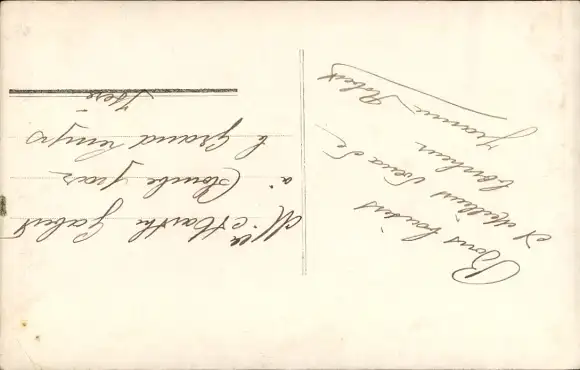 Bons baisers
et Meilleurs Vœux de
bonheur
Jeanne Robert
Mlle Marthe Gabert
à Colombe près
le Grand Lemps
Isère